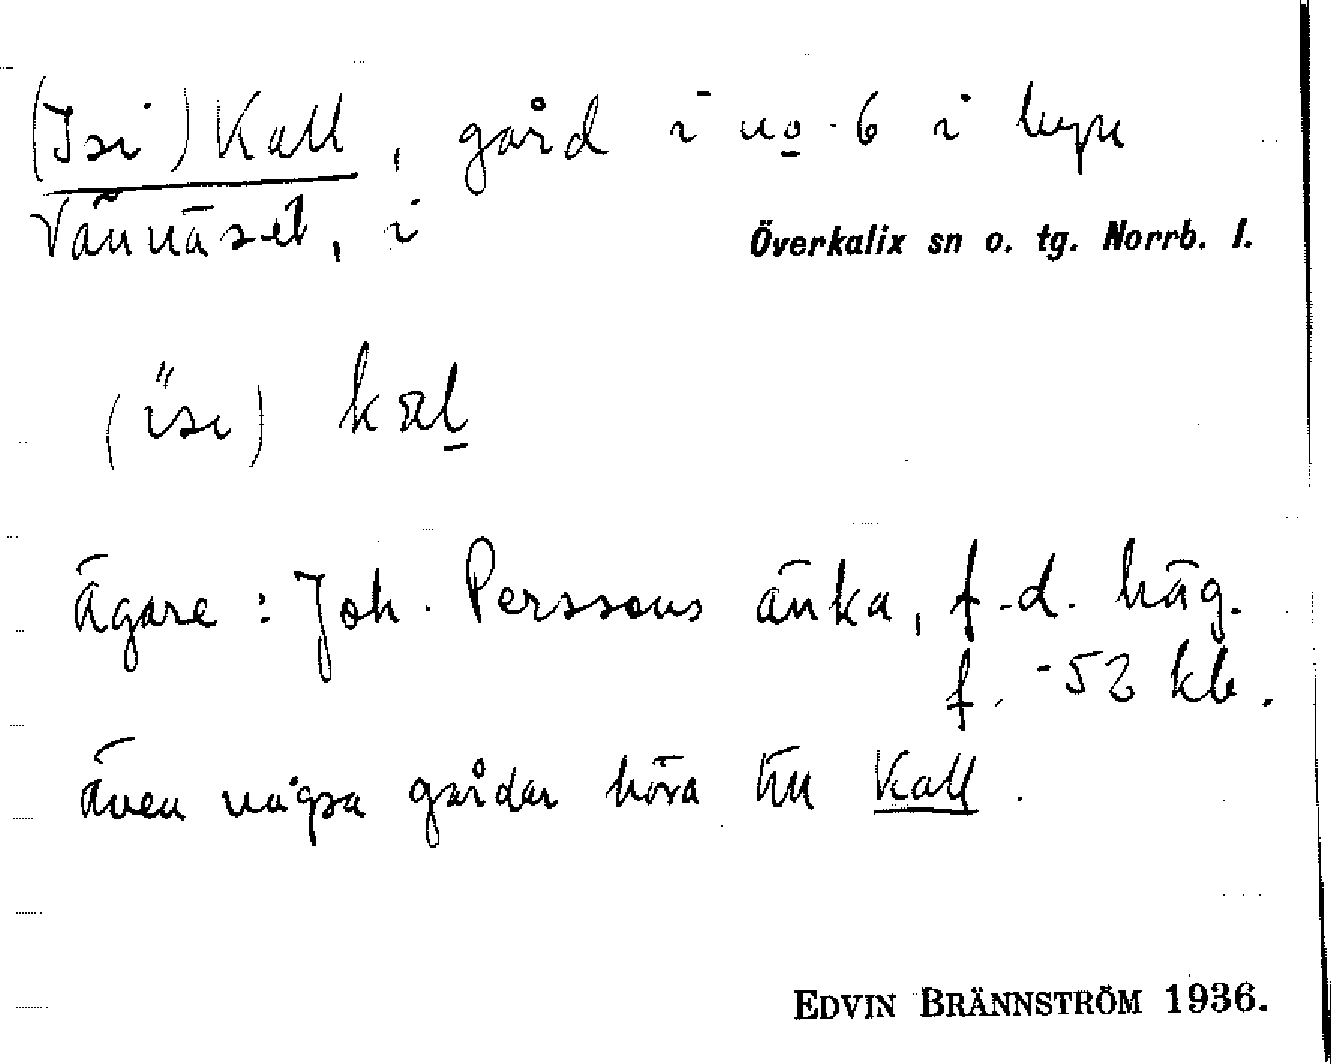 (Isi) Kall, gård i no. 6 i byn
Vännäset, i
Överkalix sn o. tg. Norrb. l.
(ïsi) kæl
ägare: Joh. Perssons änka, f.d. häg.
f. -52 kb.
även några gårdar höra till Kall.
EDVIN BRÄNNSTRÖM 1936.